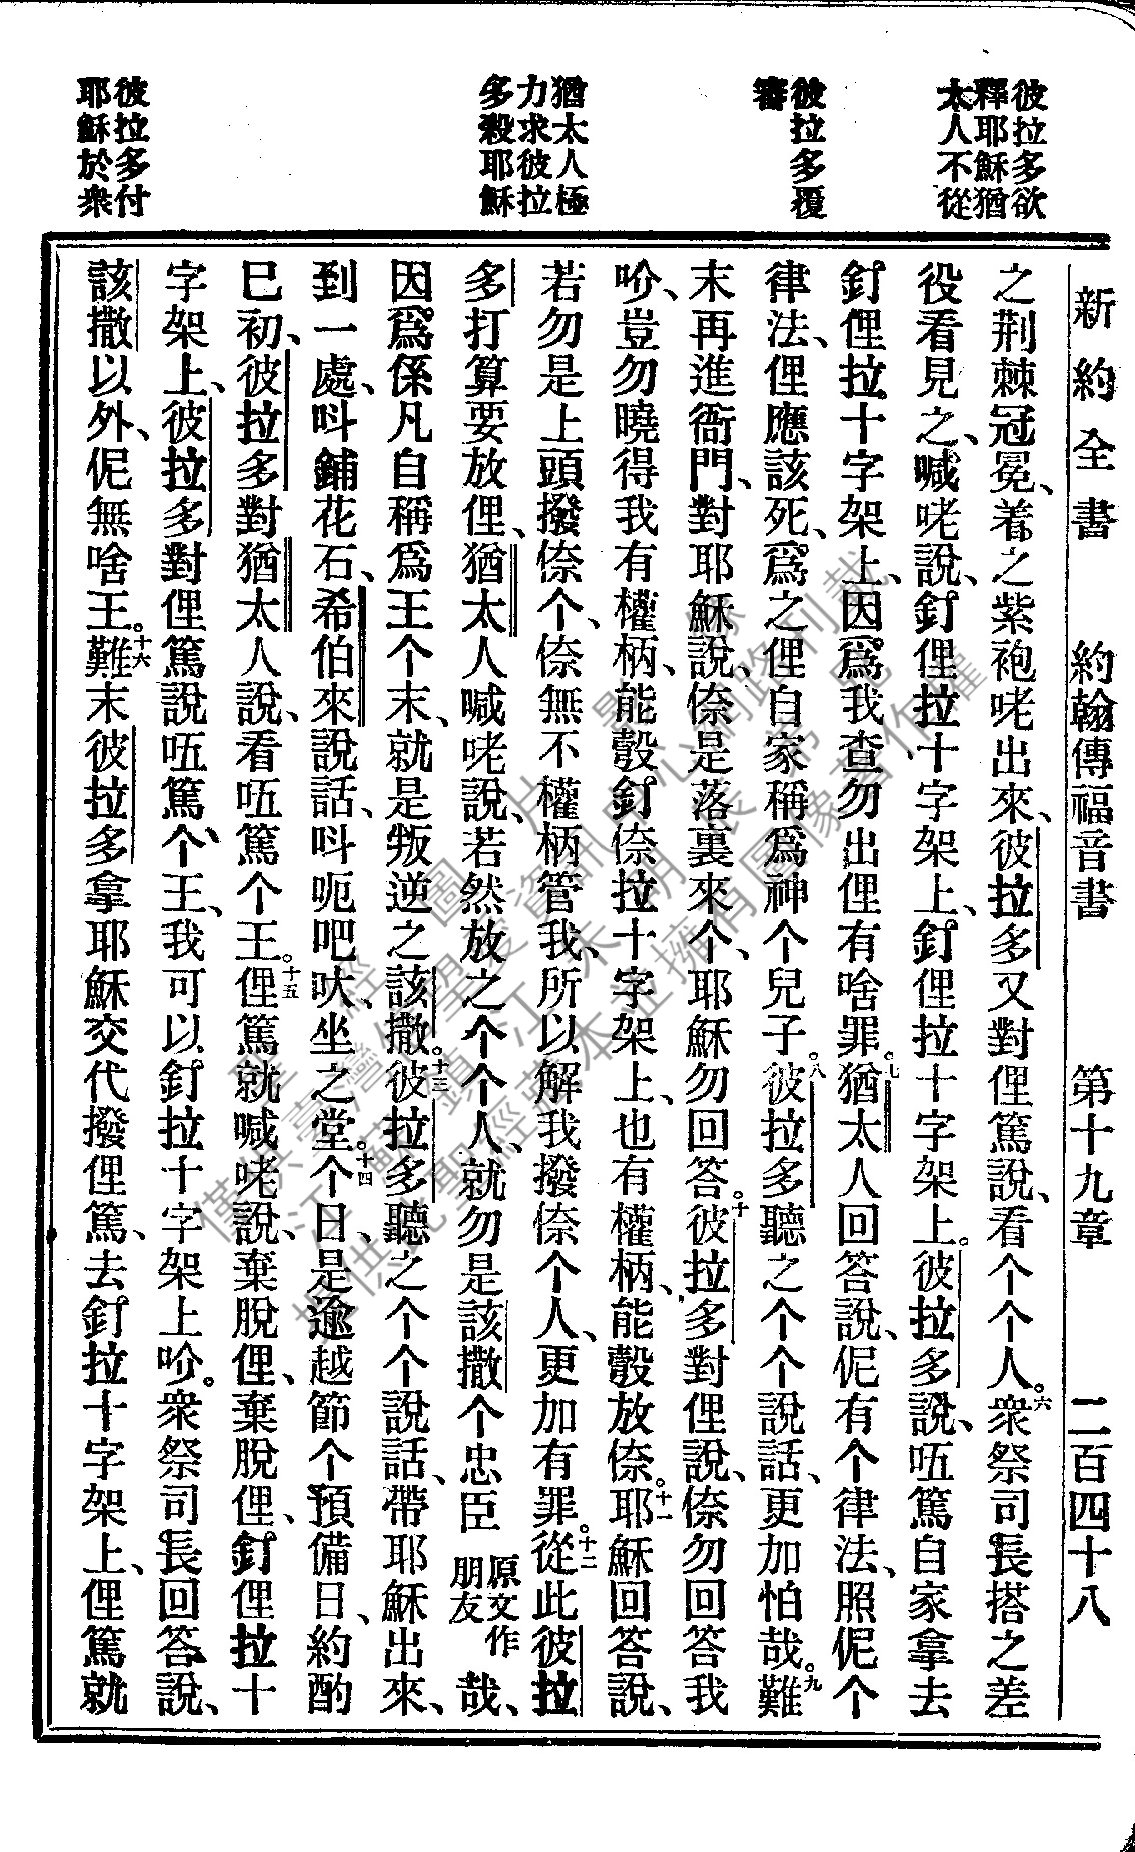 新約全書 約翰傳福音書 第十九章 二百四十八
彼拉多欲
釋耶穌猶
太人不從
彼拉多覆
審
猶太人極
力求彼拉
多殺耶穌
彼拉多付
耶穌於衆
之荆棘冠冕、着之紫袍咾出來、彼拉多又對俚篤說、看个个人。六衆祭司長搭之差
役看見之、喊咾說、釘俚拉十字架上、釘俚拉十字架上。彼拉多說、㕶篤自家拿去
釘俚拉十字架上、因爲我查勿出俚有啥罪。七猶太人回答說、伲有个律法、照伲个
律法、俚應該死、爲之俚自家稱爲神个兒子。八彼拉多聽之个个說話、更加怕哉。九難
末再進衙門、對耶穌說、倷是落裏來个、耶穌勿回答。十彼拉多對俚說、倷勿回答我
吤、豈勿曉得我有權柄、能彀釘倷拉十字架上、也有權柄、能彀放倷。十一耶穌回答說、
若勿是上頭撥倷个、倷無不權柄管我、所以解我撥倷个人、更加有罪。十二從此彼拉
多打算要放俚、猶太人喊咾說、若然放之个个人、就勿是該撒个忠臣原文作朋友哉、
因爲係凡自稱爲王个末、就是叛逆之該撒。十三彼拉多聽之个个說話、帶耶穌出來、
到一處、呌鋪花石、希伯來說話、呌呃吧吠、坐之堂。十四个日、是逾越節个預備日、約酌
巳初、彼拉多對猶太人說、看㕶篤个王。十五俚篤就喊咾說、棄脫俚、棄脫俚、釘俚拉十
字架上、彼拉多對俚篤說、㕶篤个王、我可以釘拉十字架上吤。衆祭司長回答說、
該撒以外、伲無啥王。十六難末彼拉多拿耶穌交代撥俚篤、去釘拉十字架上、俚篤就